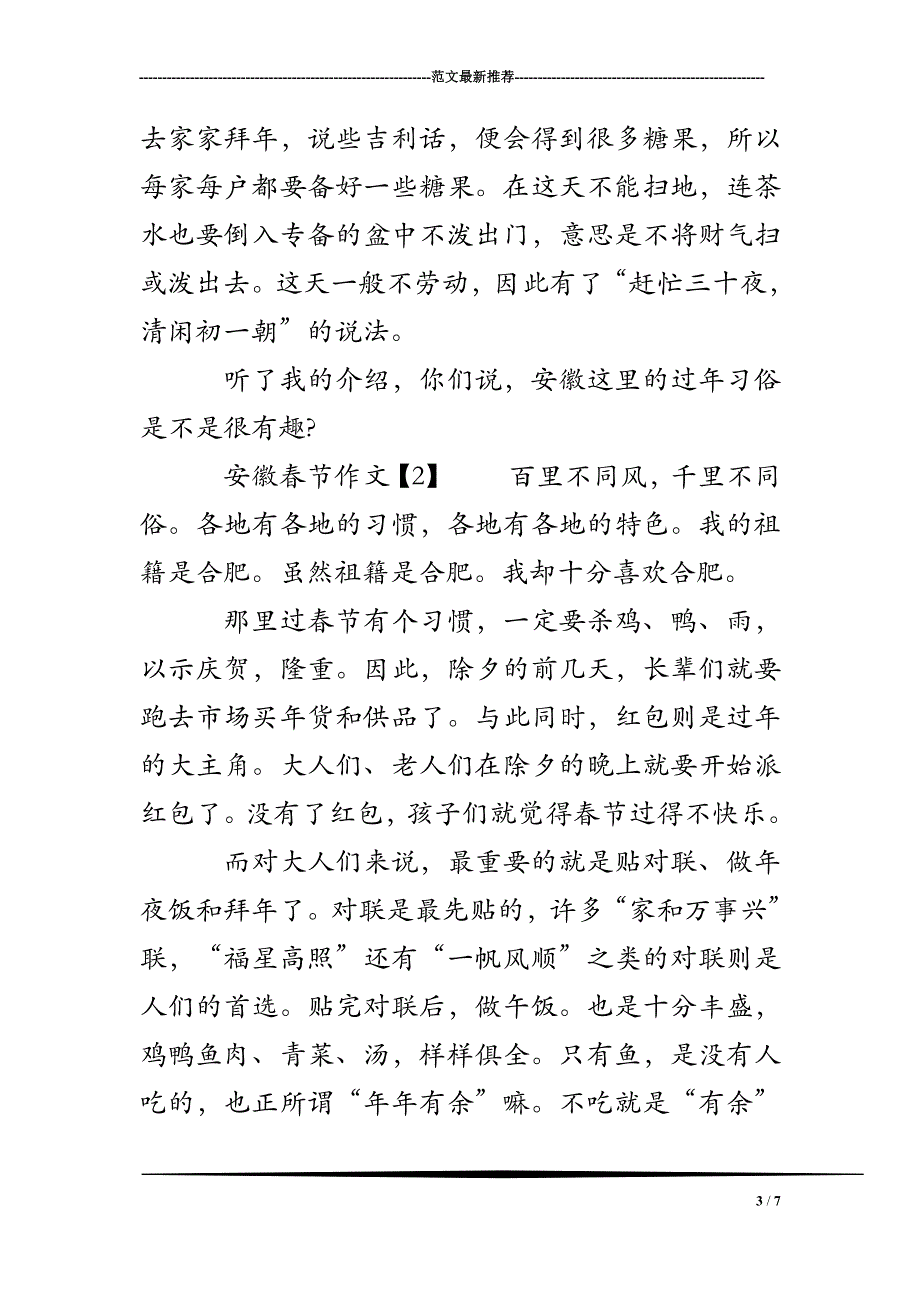 ---------------------------------------------------------------范文最新推荐------------------------------------------------------
去家家拜年，说些吉利话，便会得到很多糖果，所以
每家每户都要备好一些糖果。在这天不能扫地，连茶
水也要倒入专备的盆中不泼出门，意思是不将财气扫
或泼出去。这天一般不劳动，因此有了“赶忙三十夜，
清闲初一朝”的说法。
听了我的介绍，你们说，安徽这里的过年习俗
是不是很有趣?
安徽春节作文【2】 百里不同风，千里不同
俗。各地有各地的习惯，各地有各地的特色。我的祖
籍是合肥。虽然祖籍是合肥。我却十分喜欢合肥。
那里过春节有个习惯，一定要杀鸡、鸭、雨，
以示庆贺，隆重。因此，除夕的前几天，长辈们就要
跑去市场买年货和供品了。与此同时，红包则是过年
的大主角。大人们、老人们在除夕的晚上就要开始派
红包了。没有了红包，孩子们就觉得春节过得不快乐。
而对大人们来说，最重要的就是贴对联、做年
夜饭和拜年了。对联是最先贴的，许多“家和万事兴”
联，“福星高照”还有“一帆风顺”之类的对联则是
人们的首选。贴完对联后，做午饭。也是十分丰盛，
鸡鸭鱼肉、青菜、汤，样样俱全。只有鱼，是没有人
吃的，也正所谓“年年有余”嘛。不吃就是“有余”
3 / 7